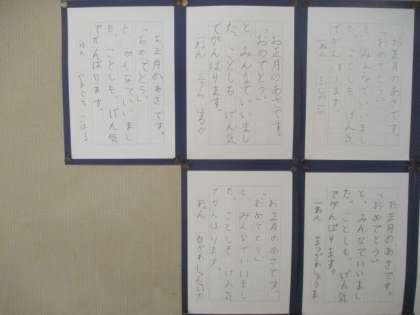 お正月のあさです。
「おめでとう」
と、みんなでいいまし
た。ことしも、げん気
でがんばります。
お正月のあさです。
「おめでとう」
と、みんなでいいまし
た。ことしも、げん気
でがんばります。
一ねん
お正月のあさです。
「おめでとう」
と、みんなでいいまし
た。ことしも、げん気
でがんばります。
お正月のあさです。
「おめでとう」
と、みんなでいいまし
た。ことしも、げん気
でがんばります。
一ねん
お正月のあさです。
「おめでとう」
と、みんなでいいまし
た。ことしも、げん気
でがんばります。